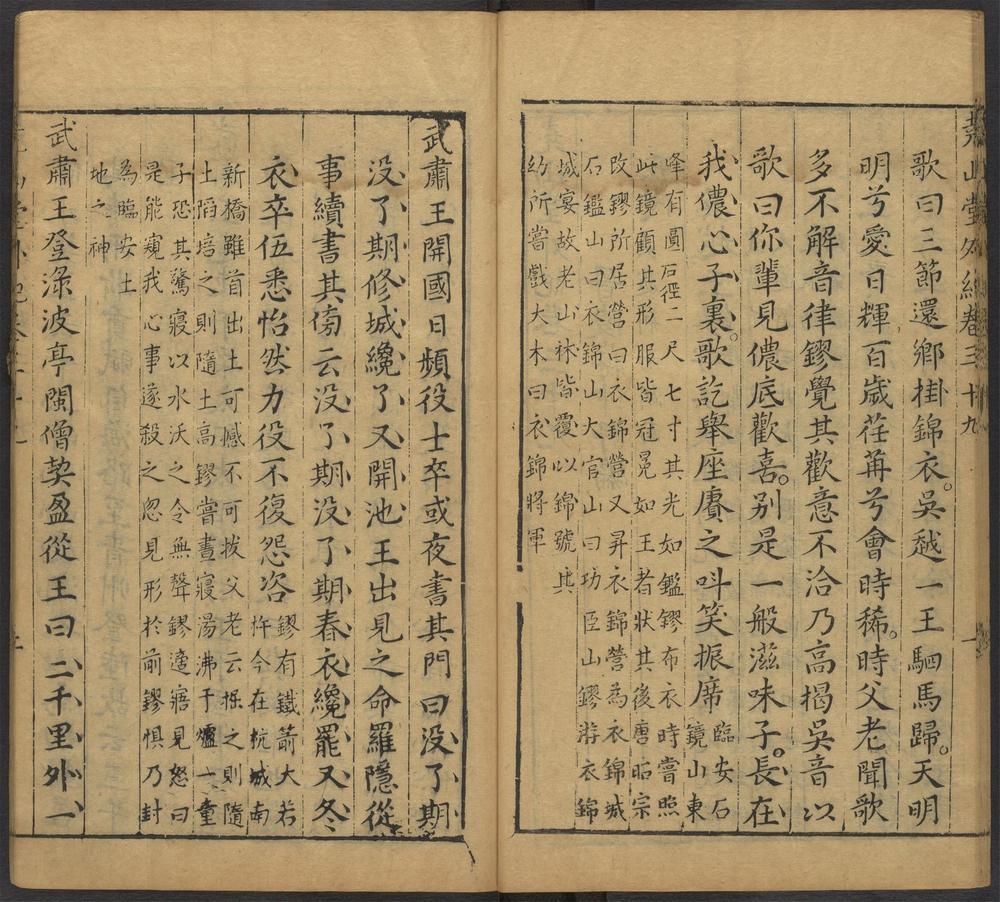 堯山堂外紀卷三十九
歌曰三節還鄉掛錦衣。吳越一王駟馬歸。天明
明兮愛日輝百歲荏苒兮會時稀。時父老聞歌
多不解音律鏐覺其歡意不洽乃高揭吳音以
歌曰你輩見儂底歡喜。别是一般滋味子。長在
我儂心子裏。歌訖舉座賡之叫笑振席
臨安石
鏡山東
峰有圓石徑二尺七寸其光如鑑鏐布衣時嘗照
此鏡顧其形服皆冠冕如王者狀其後唐昭宗
改鏐所居營曰衣錦營又昇衣錦營為衣錦城
石鑑山曰衣錦山大官山曰功臣山鏐游衣錦
城宴故老山林皆覆以錦號其
幼所嘗戲大木曰衣錦將軍
武肅王開國日頻役士卒或夜書其門曰没了期
没了期修城纔了又開池王出見之命羅隱從
事續書其傍云没了期没了期春衣纔罷又冬
衣卒伍悉怡然力役不復怨咨
鏐有鐵箭大若
杵今在杭城南
新橋雖首出土可撼不可拔父老云掘之則隨
土滔培之則隨土高鏐嘗晝寢湯沸于爐一童
子恐其驚寢以水沃之令無聲鏐適寤見怒曰
是能窺我心事遂殺之忽見形於前鏐懼乃封
為臨安土
地之神
武肅王登渌波亭閩僧契盈從王曰二千里外一